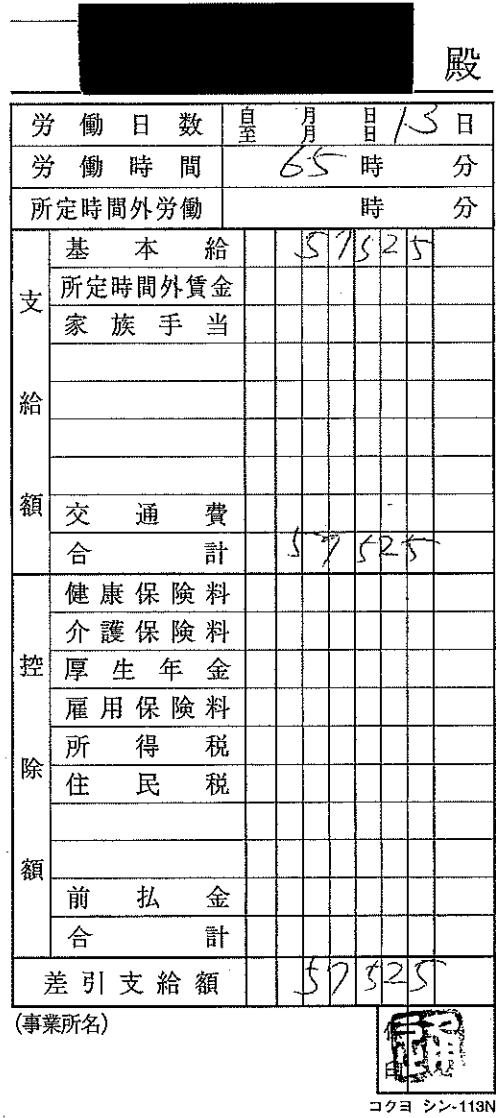 殿
労働日数 自 月 日 至 月 日 13日
労働時間 65時 分
所定時間外労働 時 分
支給額
基本給 57525
所定時間外賃金
家族手当
交通費
合計 57525
控除額
健康保険料
介護保険料
厚生年金
雇用保険料
所得税
住民税
前払金
合計
差引支給額 57525
(事業所名)
コクヨ シン-113N